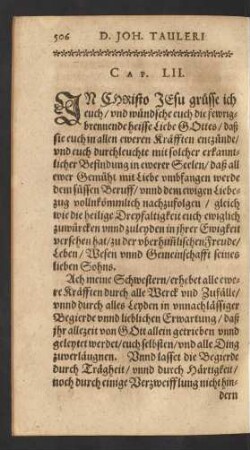 506 D. JOH. TAULERI
CAP. LII.
IN CHRisto JEsu grüsse ich
euch / vnd wündsche euch die fewrig-
brennende heisse Liebe GOttes / daß
sie euch in allen eweren Kräfften entzünde /
vnd euch durchleuchte mit solcher erkannt-
licher Befindung in ewerer Seelen / daß all
ewer Gemüht mit Liebe vmbfangen werde
dem süssen Beruff / vnnd dem ewigen Liebe-
zug vollnkömmlich nachzufolgen / gleich
wie die heilige Dreyfaltigkeit euch ewiglich
zuwürcken vnnd zuleyden in jhrer Ewigkeit
versehen hat / zu der vberhimlischen Freude /
Leben / Wesen vnnd Gemeinschafft seines
lieben Sohns.
Ach meine Schwestern / erhebet alle ewe-
re Kräfften durch alle Werck vnd Zufälle /
vnnd durch alles Leyden in vnnachlässiger
Begierde vnnd lieblichen Erwartung / daß
jhr allezeit von GOtt allein getrieben vnnd
geleytet werdet / euch selbsten / vnd alle Ding
zuverläugnen. Vnnd lasset die Begierde
durch Trägheit / vnnd durch Härtigkeit /
noch durch einige Verzweifflung nicht hin-
dern